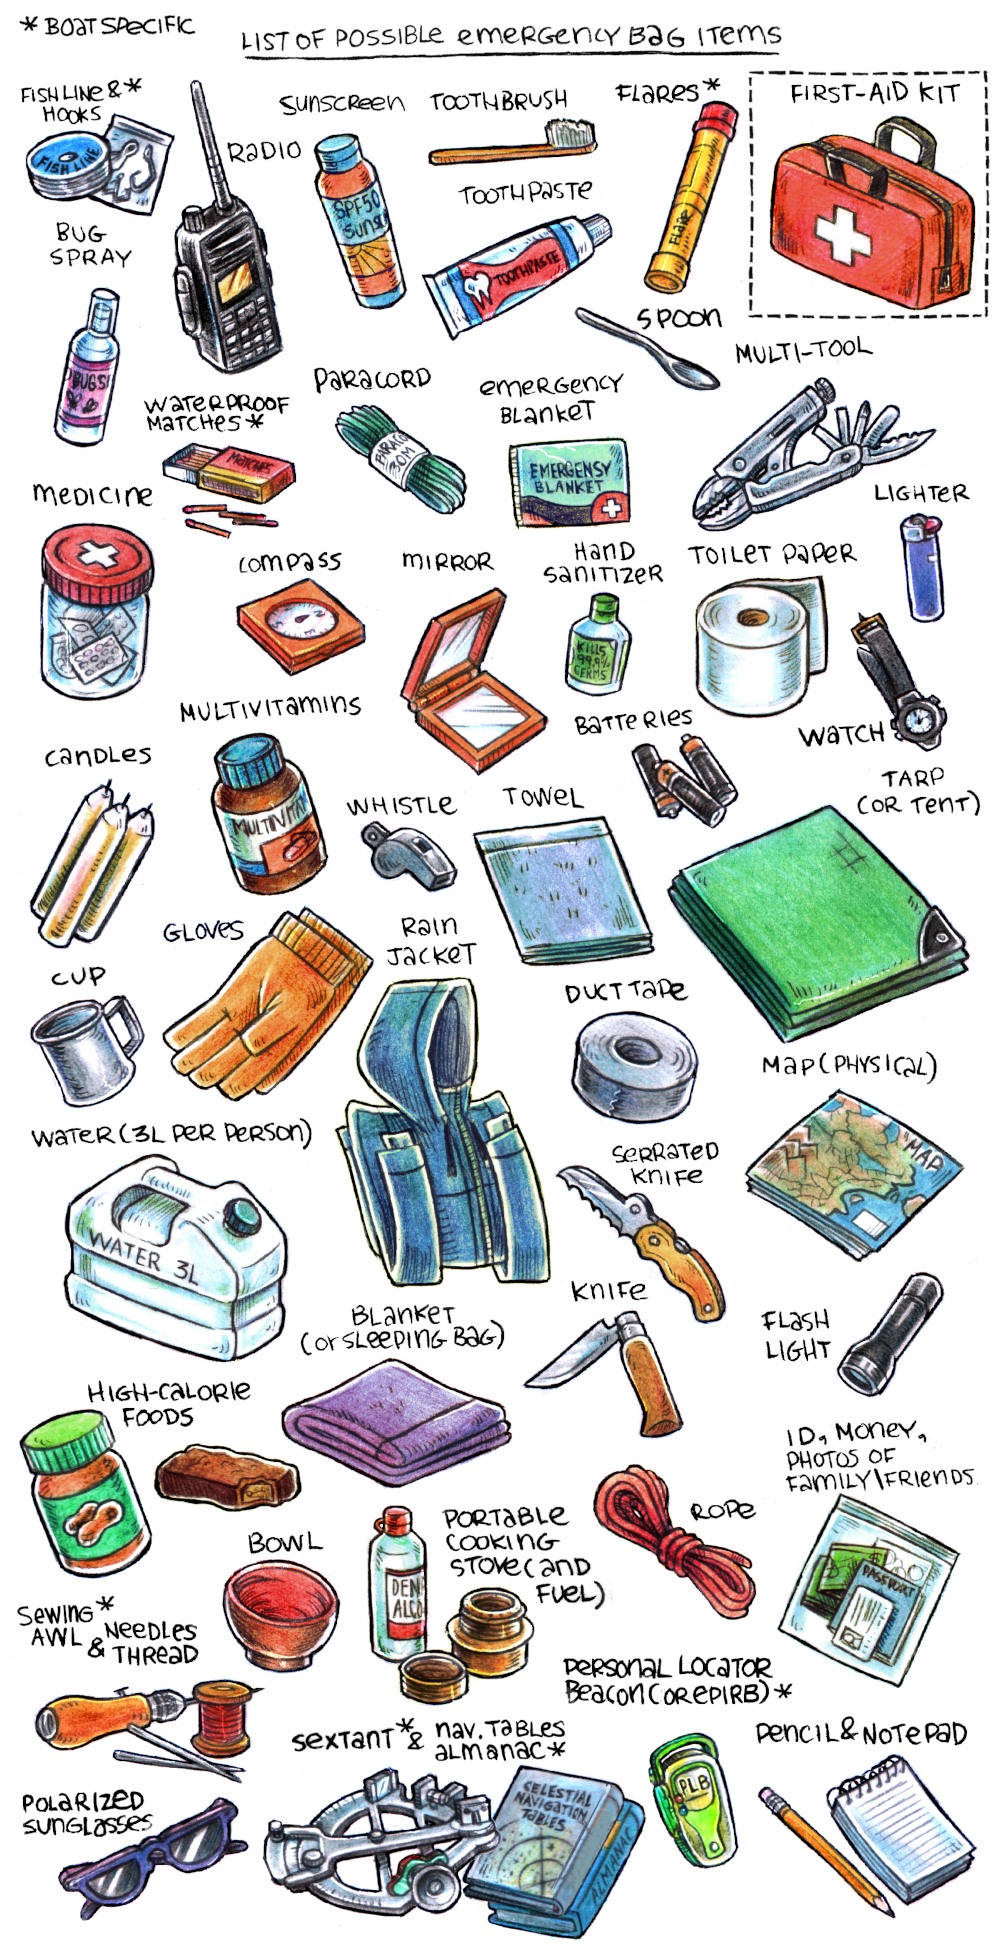 * BOAT SPECIFIC
LIST OF POSSIBLE EMERGENCY BAG ITEMS
FISH LINE & *
HOOKS
FISH LINE
RADIO
SUNSCREEN
SPF50
TOOTHBRUSH
TOOTHPASTE
TOOTHPASTE
FLARES *
Flare
FIRST-AID KIT
BUG
SPRAY
BUGS!
SPOON
MULTI-TOOL
WATERPROOF
MATCHES *
MATCHES
PARACORD
PARACO
30M
EMERGENCY
BLANKET
EMERGENSY
BLANKET
LIGHTER
MEDICINE
COMPASS
MIRROR
HAND
SANITIZER
KILLS
99.9%
GERMS
TOILET PAPER
WATCH
MULTIVITAMINS
MULTIVITA
BATTERIES
CANDLES
WHISTLE
TOWEL
TARP
(OR TENT)
GLOVES
RAIN
JACKET
CUP
DUCT TAPE
MAP (PHYSICAL)
MAP
WATER (3L PER PERSON)
WATER 3L
SERRATED
KNIFE
KNIFE
FLASH
LIGHT
BLANKET
(OR SLEEPING BAG)
HIGH-CALORIE
FOODS
ID, MONEY,
PHOTOS OF
FAMILY\FRIENDS
PASSPORT
ROPE
BOWL
PORTABLE
COOKING
STOVE (AND
FUEL)
DEN
ALCO
SEWING *
AWL & NEEDLES
THREAD
PERSONAL LOCATOR
BEACON (OR EPIRB) *
PLB
SEXTANT * & NAV. TABLES
ALMANAC *
CELESTIAL
NAVIGATION
TABLES
ALMANAC
PENCIL & NOTEPAD
POLARIZED
SUNGLASSES